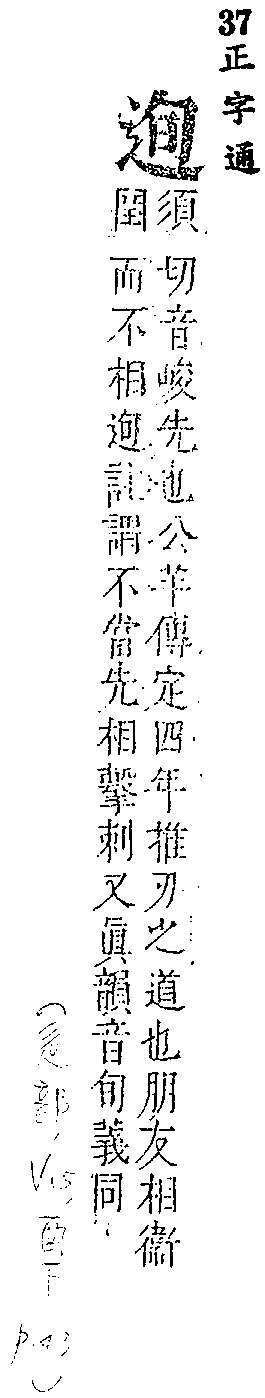 37正字通
迿
須閏切音峻先也公羊傳定四年推刃之道也朋友相衞
而不相迿註謂不當先相擊刺又眞韻音旬義同
(辵部, V15, 酉下 p.43)